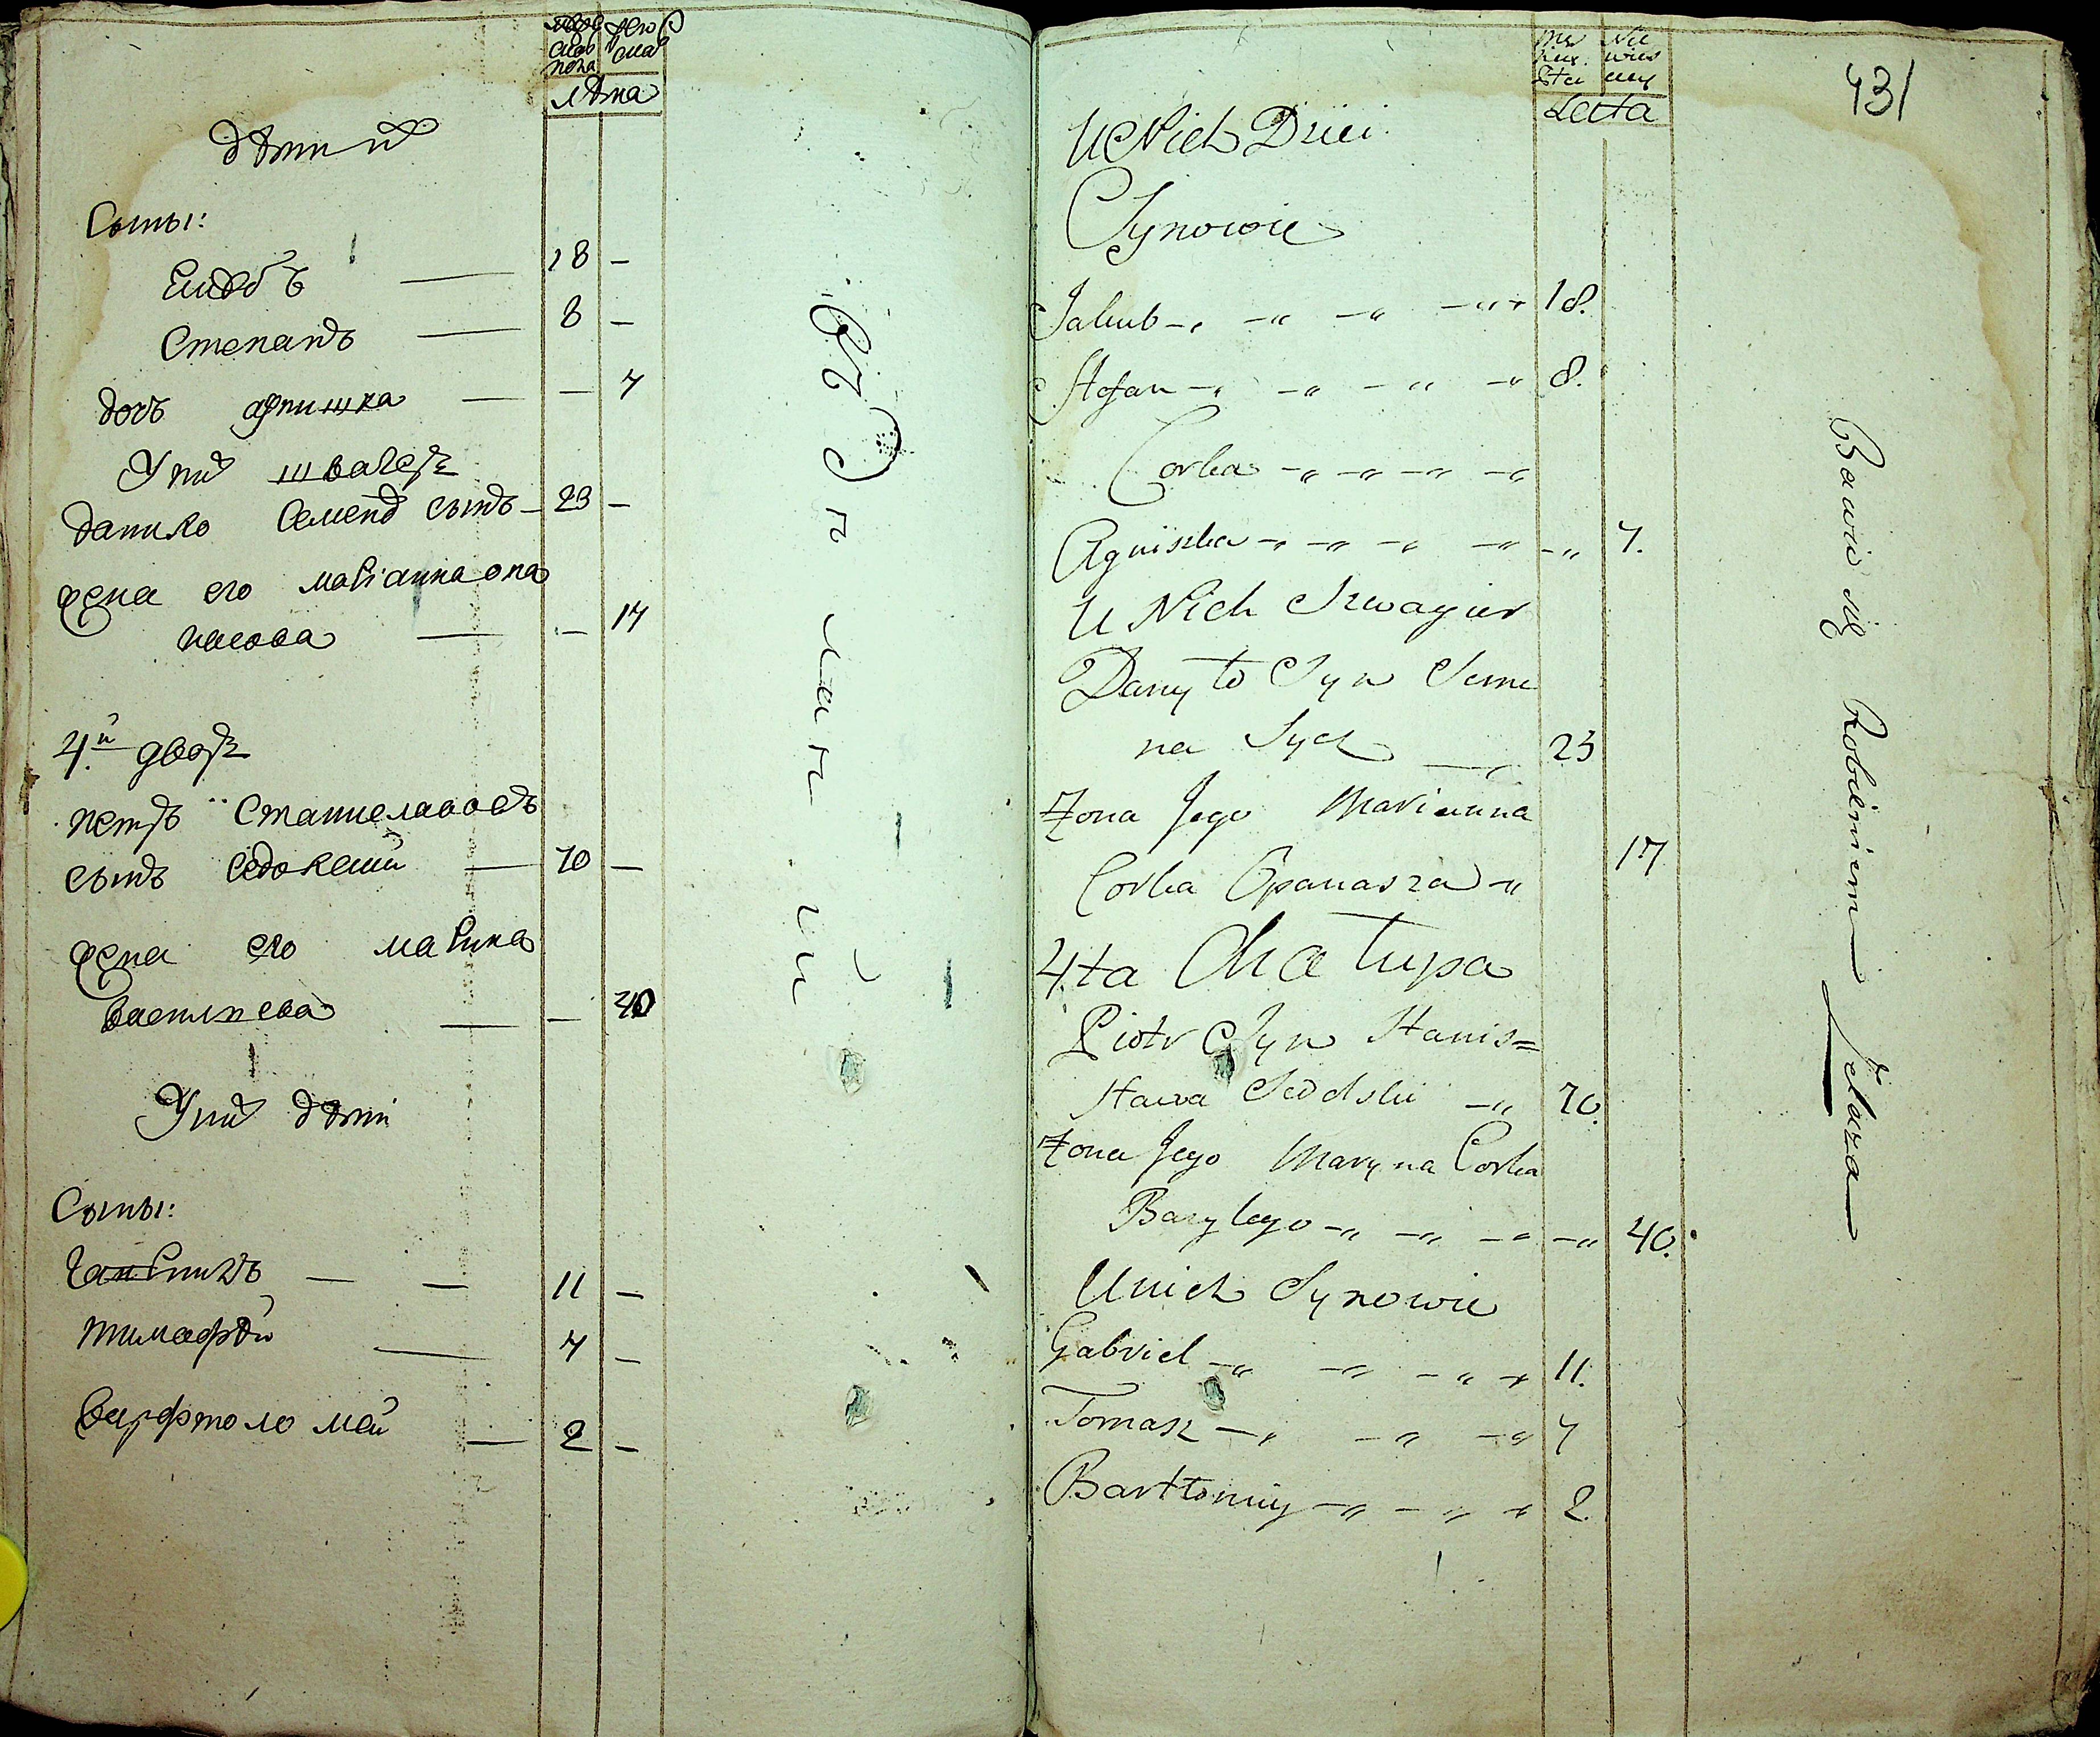 лѣта
дѣти ихъ
Сыны:
Якубъ — 18 —
Степанъ — 8 —
дочь агнишка — — 7
У них швагеръ
данило Семена сынъ — 23 —
жена его маріанна опа
насова — — 17
4й дворъ
петръ Станиславовъ
сынъ Седлецкий — 70 —
жена его марина
васильева — — 40
У них дѣти
Сыны:
гавриилъ — — 11 —
тимафѣй — 7 —
варфтоломей — 2 —
Męz Nie
kie. wies
Sta ciey
Lata
431
U Nich Dzieci
Synowie
Jakub 18.
Stefan 8.
Corka
Agniszka 7.
U Nich Szwagier
Danyło Syn Seme
na Sych 23
Żona Jego Marianna
Corka Opanasza 17
4ta Chałupa
Piotr Syn Stanis=
ława 70.
Żona Jego Maryna Corka
Bazylego 40.
U nich Synowie
Gabriel 11.
Tomasz 7
Bartłomiy 2.
Bawie się Robieniem żelaza